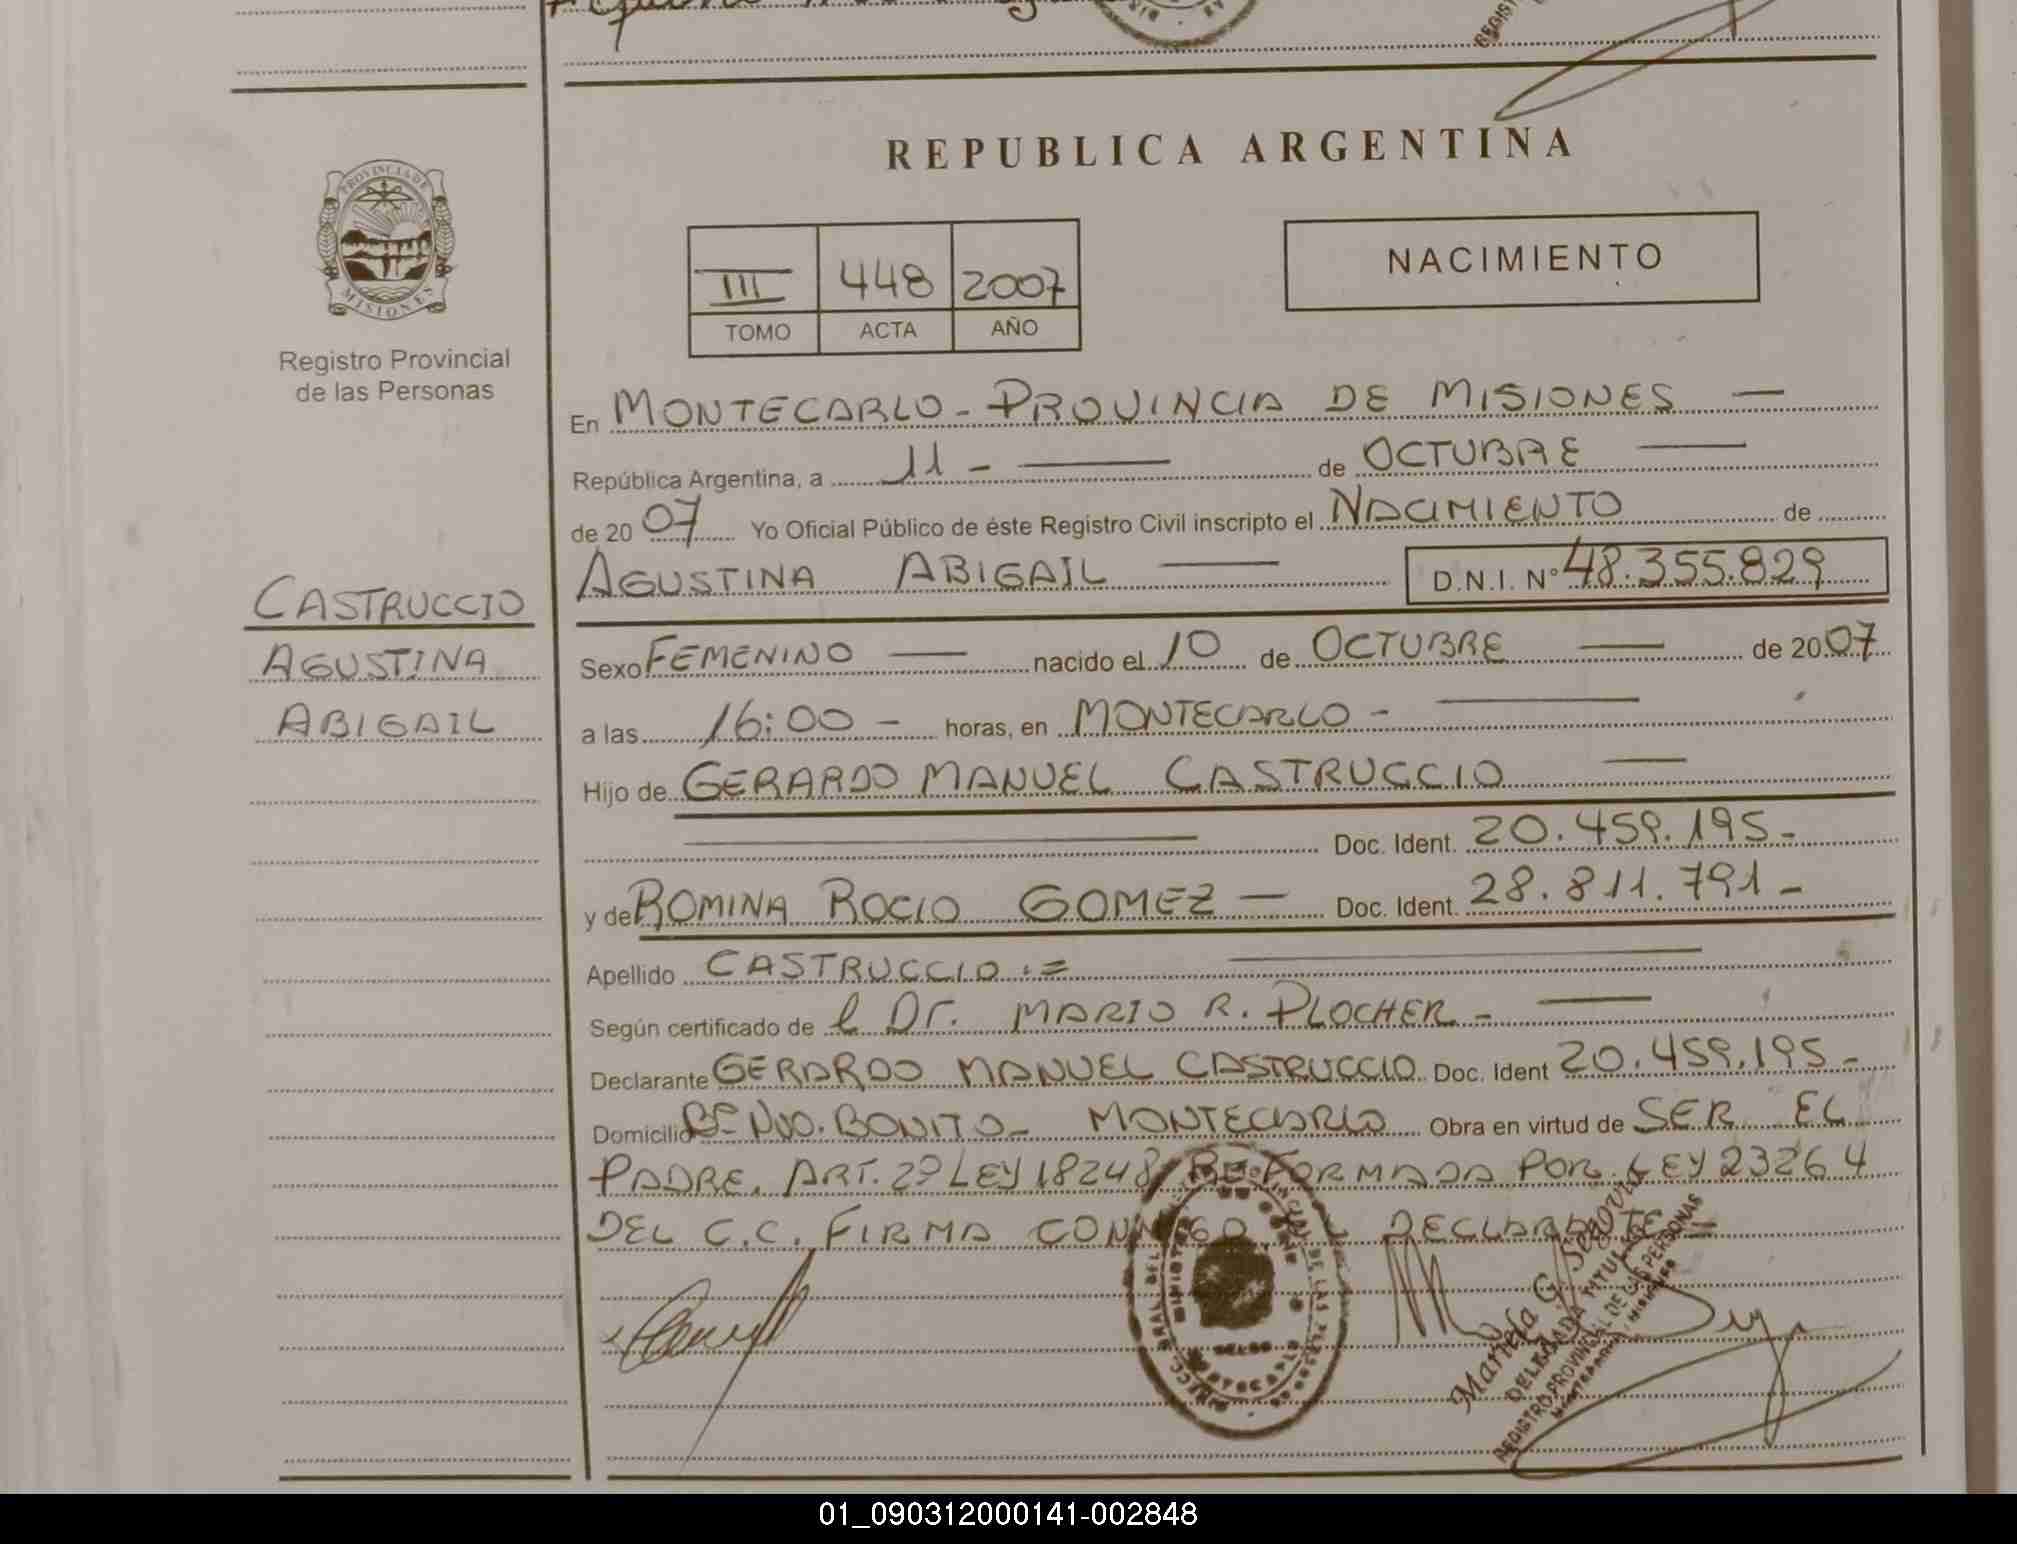 REPUBLICA ARGENTINA
PROVINCIA DE
MISIONES
Registro Provincial
de las Personas
III 448 2007
TOMO ACTA AÑO
NACIMIENTO
En MONTECARLO - PROVINCIA DE MISIONES —
República Argentina, a 11 - — de OCTUBRE —
de 20 07 Yo Oficial Público de éste Registro Civil inscripto el NACIMIENTO de
AGUSTINA ABIGAIL — D.N.I. Nº 48.355.829
CASTRUCCIO
AGUSTINA
ABIGAIL
Sexo FEMENINO — nacido el 10 de OCTUBRE — de 20 07
a las 16:00 - horas, en MONTECARLO - —
Hijo de GERARDO MANUEL CASTRUCCIO —
— Doc. Ident. 20.459.195-
y de ROMINA ROCIO GOMEZ — Doc. Ident. 28.811.791-
Apellido CASTRUCCIO.= —
Según certificado de l Dr. MARIO R. PLOCHER - —
Declarante GERARDO MANUEL CASTRUCCIO Doc. Ident 20.459.195-
Domicilio Bº NVO. BONITO - MONTECARLO Obra en virtud de SER EL
PADRE. ART. 2º LEY 18248 REFORMADA POR LEY 23264
DEL C.C. FIRMA CONMIGO EL DECLARANTE -
Mariela G. Segovia
DELEGADA TITULAR
REGISTRO PROVINCIAL DE LAS PERSONAS
01_090312000141-002848